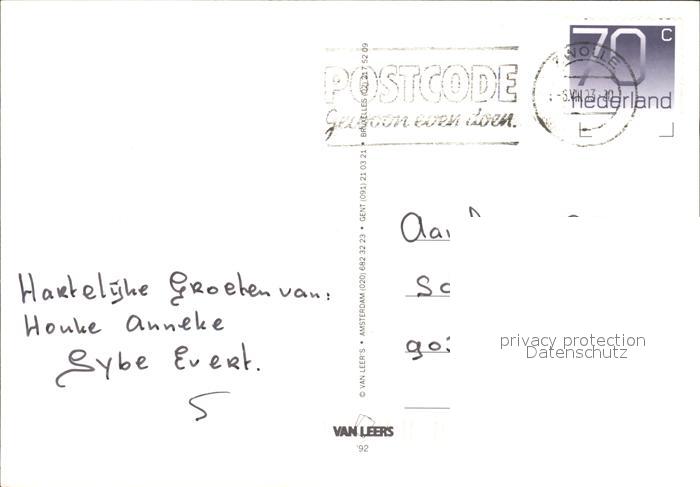 70 C
nederland
ZWOLLE
POSTCODE
Gewoon even doen.
© VAN LEER'S • AMSTERDAM (020) 682 32 23 • GENT (091) 21 03 21 • BRUXELLES (02) 217 52 09
Aa
Sc
Hartelijke Groeten van:
Houke Anneke
Sybe Evert.
privacy protection
Datenschutz
VAN LEER'S
'92